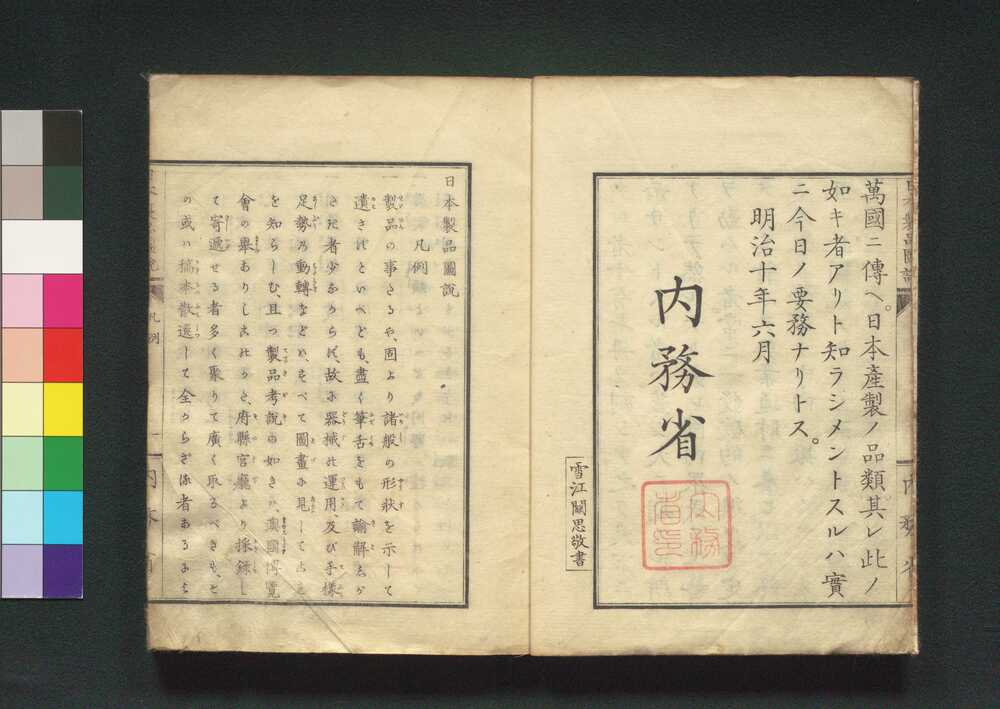 萬國ニ傳ヘ。日本產製ノ品類其レ此ノ
如キ者アリト知ラシメントスルハ實
ニ今日ノ要務ナリトス。
明治十年六月
内務省
内務
省印
雪江關思敬書
日本製品圖說
凡例
一 製品の事たるや、固より諸般の形狀を示して
遺きたといへども、盡く筆舌をもて諭解しが
たき者少なからず、故に器械の運用、及び手樣
足勢の動轉などハ、すべて圖畫に見してこれ
を知らしむ、且つ製品考說の如きハ、澳國博覽
會の擧ありしころほひ、府縣官廳より採錄し
て寄遞せる者多く聚りて廣く取るべきも、そ
の或ハ稿本散逸して全からざる者あるによ
凡例
一
内務省